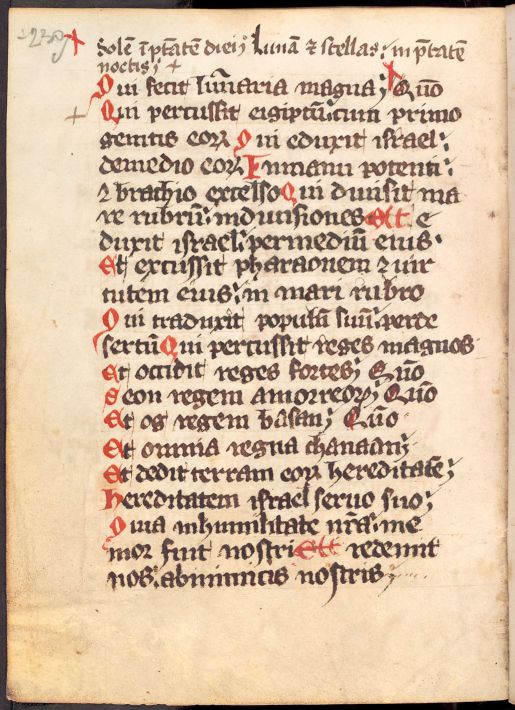 Solē ī ptātē diei; Lunā ⁊ stellas: in ptātē
noctis;
Qui fecit luīnaria magna; Qūo
Qui percussit egiptū: cum primo
genitis eoꝝ Qui eduxit israel:
demedio eoꝝ In manu potenti:
⁊ brachio excelso Qui diuisit ma
re rubrū: indiuisiones Et e
duxit israel: permediū eius
Et excussit pharaonem ⁊ uir
tutem eius: in mari rubro
Qui traduxit populū suū: perde
sertū Qui percussit reges magnos
Et occidit reges fortes; Qūo
Seon regem amorreoꝝ; Qūo
Et og regem basan; Qūo
Et omnia regna chanaan;
Et dedit terram eoꝝ hereditatē;
Hereditatem israel seruo suo;
Quia inhumilitate nrā: me
mor fuit nostri Et redemit
nos: abinimicis nostris;